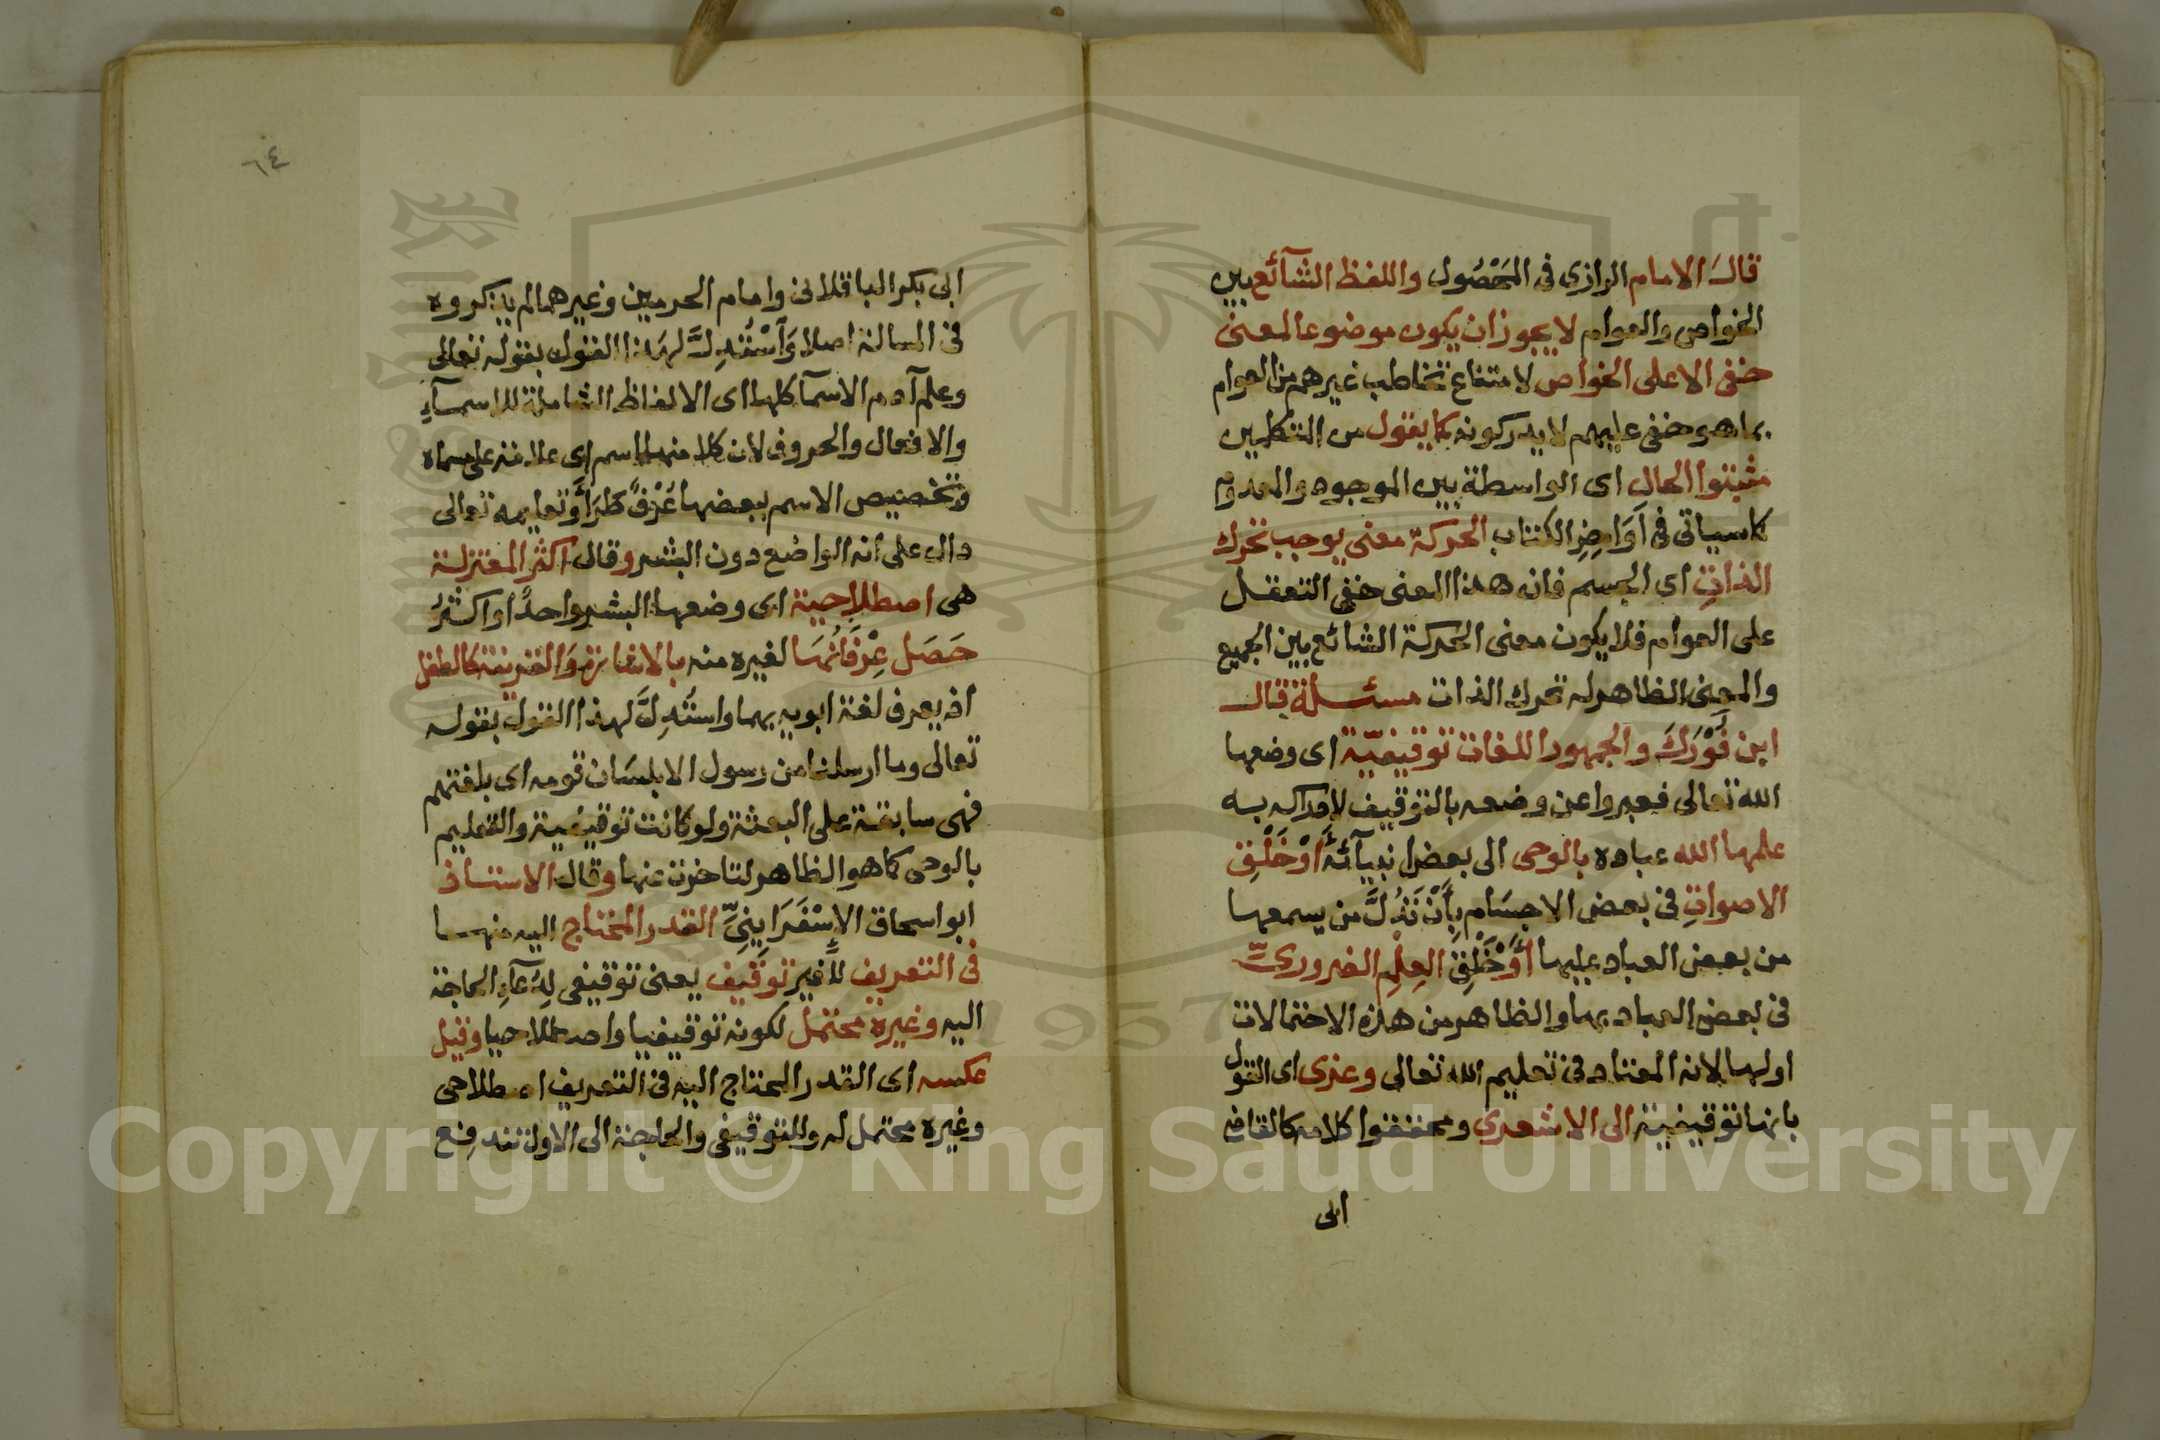 قال الامام الرازى فى المَحْصُول واللفظ الشآئع بين
الخواص والعوام لا يجوز ان يكون موضوعا لمعنى
خفى الا على الخواص لامتناع تخاطب غيرهم من العوام
بما هو خفى عليهم لا يدركونه كما يقول من المتكلمين
مثبتوا الحال اى الواسطة بين الموجود والمعدوم
كما سياتى فى اَوَاخِرِ الكتاب الحركة معنى يوجب تحرك
الذاتِ اى الجسم فان هذا المعنى خفى التعقل
على العوام فلا يكون معنى الحركة الشائع بين الجميع
والمعنى الظاهر له تحرك الذات مسئلة قال
ابن فُوْرَكَ والجمهور اللغات توقيفيّة اى وضعها
الله تعالى فعبروا عن وضعه بالتوقيف لادراكه به
علمها الله عباده بالوحى الى بعض انبيآئه أَوْ خَلْقِ
الاصواتِ فى بعض الاجسَام بِأَنْ تَدُلَّ من يسمعها
من بعض العباد عليها أَوْ خَلْقِ العِلْمِ الضرورىِّ
فى بعض العباد بها والظاهر من هذه الاحتمالات
اولها لانه المعتاد فى تعليم الله تعالى وعزى اى القول
بانها توقيفية الى الاشعرى ومحققوا كلامه كالقاضى
ابى
٦٤
ابى بكر الباقلانى وامام الحرمين وغيرهما لم يذكروه
فى المسالة اصلا وَاُسْتُدِلَّ لهذا القول بقوله تعالى
وعلم آدم الاسمآ كلها اى الالفاظ الشاملة للاسمآءِ
والافعال والحروف لان كلا منها اسم اى علامة على مسماه
وتخصيص الاسم ببعضها عُرْفٌ طَرَأَ وتعليمه تعالى
دال على انه الواضع دون البشر وقال اكثر المعتزلة
هى اصطلاحية اى وضعها البشر واحدًا او اكثرُ
حَصَل عِرْفَانُهَا لغيره منه بالاشارة وَالقرينة كالطفل
اذ يعرف لغة ابويه بهما واستُدِلَّ لهذا القول بقوله
تعالى وما ارسلنا من رسول الا بلسَان قومه اى بلغتهم
فهى سابقة على البعثة ولو كانت توقيفية والتعليم
بالوحى كما هو الظاهر لتاخرت عنها وقال الاستاذ
ابو اسحاق الإِسْفَرَايِنِىِّ القدر المحتاج اليه منها
فى التعريف للغير توقيف يعنى توقيفى لِدُعآءِ الحاجة
اليه وغيره محتمل لكونه توقيفيا واصطلاحيا وقيل
عكسه اى القدر المحتاج اليه فى التعريف اصطلاحى
وغيره محتمل له وللتوقيفى والحاجة الى الاول تندفع
Copyright © King Saud University
1957